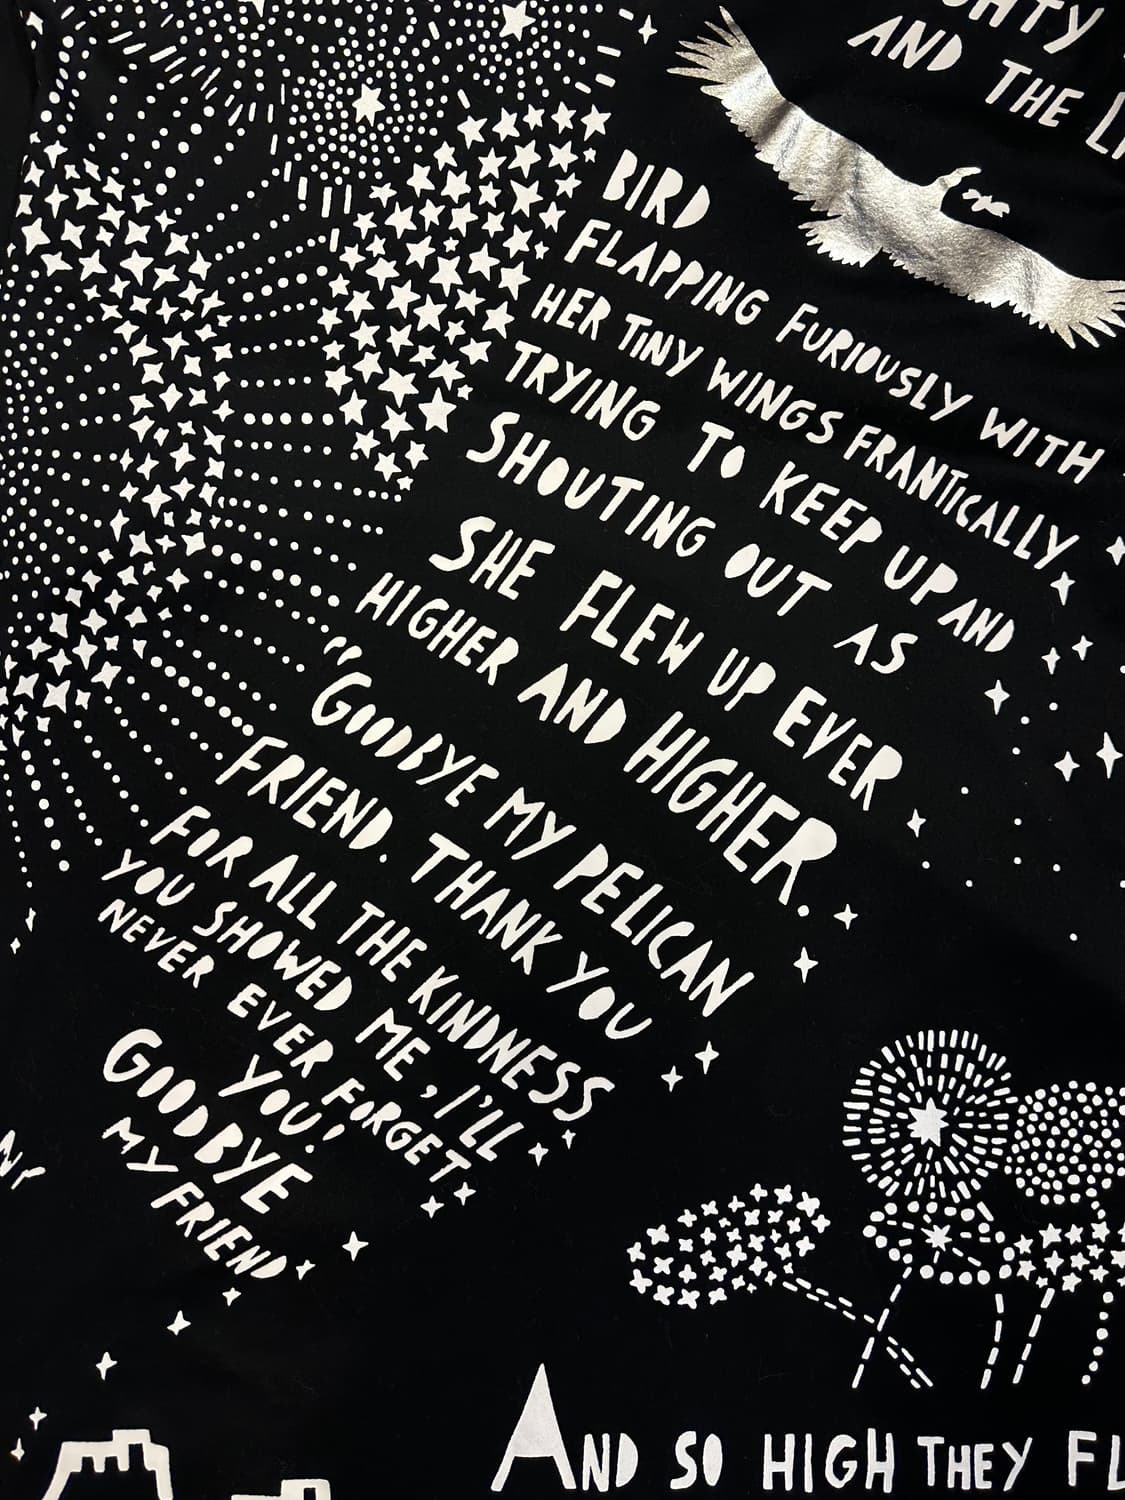 AND THE
BIRD
FLAPPING FURIOUSLY WITH
HER TINY WINGS FRANTICALLY
TRYING TO KEEP UP AND
SHOUTING OUT AS
SHE FLEW UP EVER
HIGHER AND HIGHER.
"GOODBYE MY PELICAN
FRIEND. THANK YOU
FOR ALL THE KINDNESS
YOU SHOWED ME, I'LL
NEVER EVER FORGET
YOU!'
GOODBYE
MY FRIEND
AND SO HIGH THEY